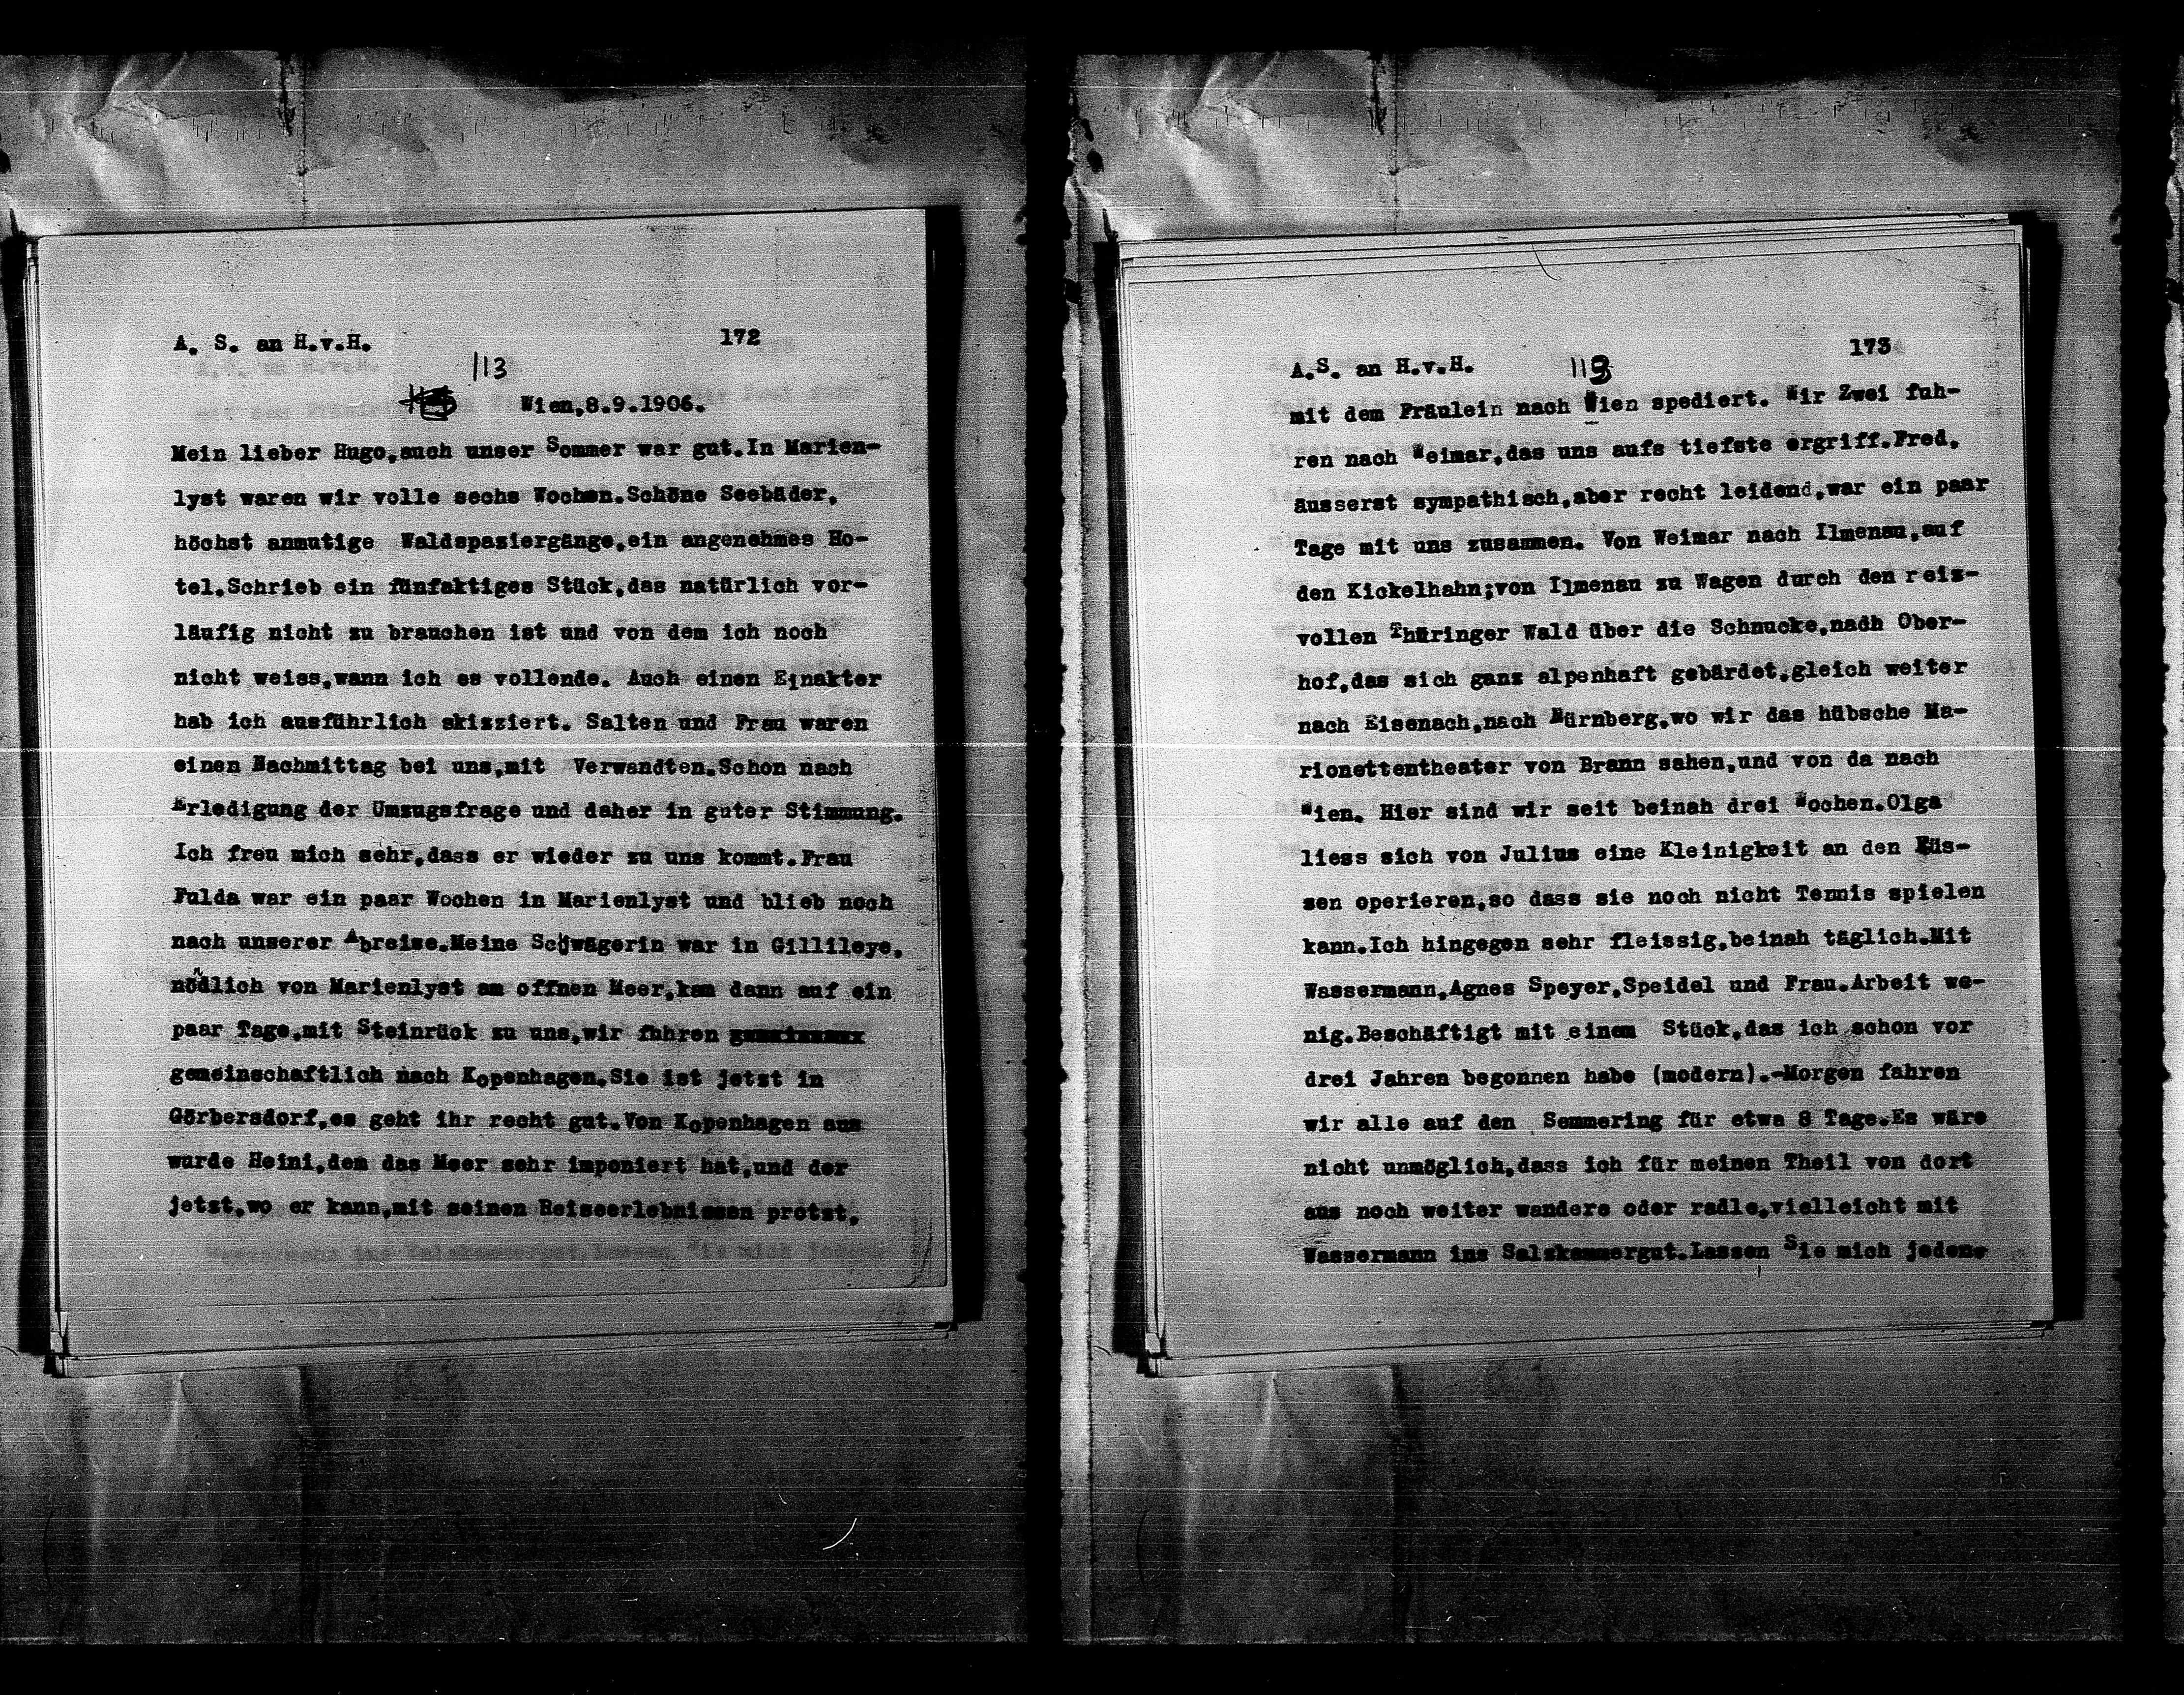 A. S. an H.v.H.
172
113
Wien,8.9.1906.
Mein lieber Hugo,auch unser Sommer war gut.In Marien-
lyst waren wir volle sechs Wochen.Schöne Seebäder,
höchst anmutige Waldspaziergänge,ein angenehmes Ho-
tel.Schrieb ein fünfaktiges Stück,das natürlich vor-
läufig nicht zu brauchen ist und von dem ich noch
nicht weiss,wann ich es vollende. Auch einen Einakter
hab ich ausführlich skizziert. Salten und Frau waren
einen Nachmittag bei uns,mit Verwandten.Schon nach
Erledigung der Umzugsfrage und daher in guter Stimmung.
Ich freu mich sehr,dass er wieder zu uns kommt.Frau
Fulda war ein paar Wochen in Marienlyst und blieb noch
nach unserer Abreise.Meine Schwägerin war in Gillileye,
nödlich von Marienlyst am offnen Meer,kam dann auf ein
paar Tage,mit Steinrück zu uns,wir fuhren
gemeinschaftlich nach Kopenhagen.Sie ist jetzt in
Görbersdorf,es geht ihr recht gut.Von Kopenhagen aus
wurde Heini,dem das Meer sehr imponiert hat,und der
jetzt,wo er kann,mit seinen Reiseerlebnissen protzt,
A.S. an H.v.H.
113
173
mit dem Fräulein nach Wien spediert. Wir Zwei fuh-
ren nach Weimar,das uns aufs tiefste ergriff.Fred,
äusserst sympathisch,aber recht leidend,war ein paar
Tage mit uns zusammen. Von Weimar nach Ilmenau,auf
den Kickelhahn;von Ilmenau zu Wagen durch den reiz-
vollen Thüringer Wald über die Schmucke,nach Ober-
hof,das sich ganz alpenhaft gebärdet,gleich weiter
nach Eisenach,nach Nürnberg,wo wir das hübsche Ma-
rionettentheater von Brann sahen,und von da nach
Wien. Hier sind wir seit beinah drei Wochen.Olga
liess sich von Julius eine Kleinigkeit an den Füs-
sen operieren,so dass sie noch nicht Tennis spielen
kann.Ich hingegen sehr fleissig,beinah täglich.Mit
Wassermann,Agnes Speyer,Speidel und Frau.Arbeit we-
nig.Beschäftigt mit einem Stück,das ich schon vor
drei Jahren begonnen habe (modern).-Morgen fahren
wir alle auf den Semmering für etwa 8 Tage.Es wäre
nicht unmöglich,dass ich für meinen Theil von dort
aus noch weiter wandere oder radle,vielleicht mit
Wassermann ins Salzkammergut.Lassen Sie mich jeden-